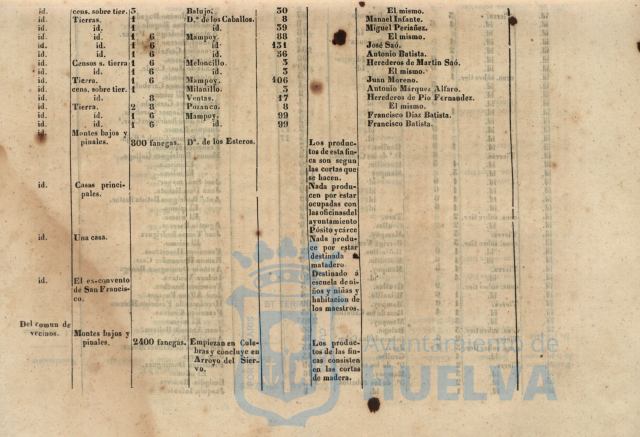 id. cens. sobre tier. 3 Balujo. 30 El mismo.
id. Tierras. 1 D.ª de los Caballos. 8 Manuel Infante.
id. id. 1 id. 39 Miguel Periañez.
id. id. 1 6 Mampoy. 88 El mismo.
id. id. 1 6 id. 131 José Saó.
id. id. 1 6 id. 36 Antonio Batista.
id. Censos s. tierra 1 6 Meloncillo. 3 Herederos de Martin Saó.
id. id. 1 6 id. 3 El mismo.
id. Tierra. 1 6 Mampoy. 106 Juan Moreno.
id. cens. sobre tier. 1 6 Milanillo. 3 Antonio Márquez Alfaro.
id. id. 8 Ventas. 17 Herederos de Pio Fernandez.
id. Tierra. 2 8 Pozanca. 8 El mismo.
id. id. 1 6 Mampoy. 99 Francisco Diaz Batista.
id. id. 1 6 id. 99 Francisco Batista.
id. Montes bajos y
pinales. 800 fanegas. D.ª de los Esteros. Los produc-
tos de esta fin-
ca son segun
las cortas que
se hacen.
id. Casas princi-
pales. Nada produ-
cen por estar
ocupadas con
las oficinas del
ayuntamiento
Pósito y cárce
id. Una casa. Nada produ-
ce por estar
destinada
matadero
id. El ex-convento
de San Francis-
co. Destinado á
escuela de ni-
ños y niñas y
habitacion de
los maestros.
Del comun de
vecinos. Montes bajos y
pinales. 2400 fanegas. Empiezan en Cole-
bras y concluye en
Arroyo del Sier-
vo. Los produc-
tos de las fin-
cas consisten
en las cortas
de madera.
Ayuntamiento de
HUELVA